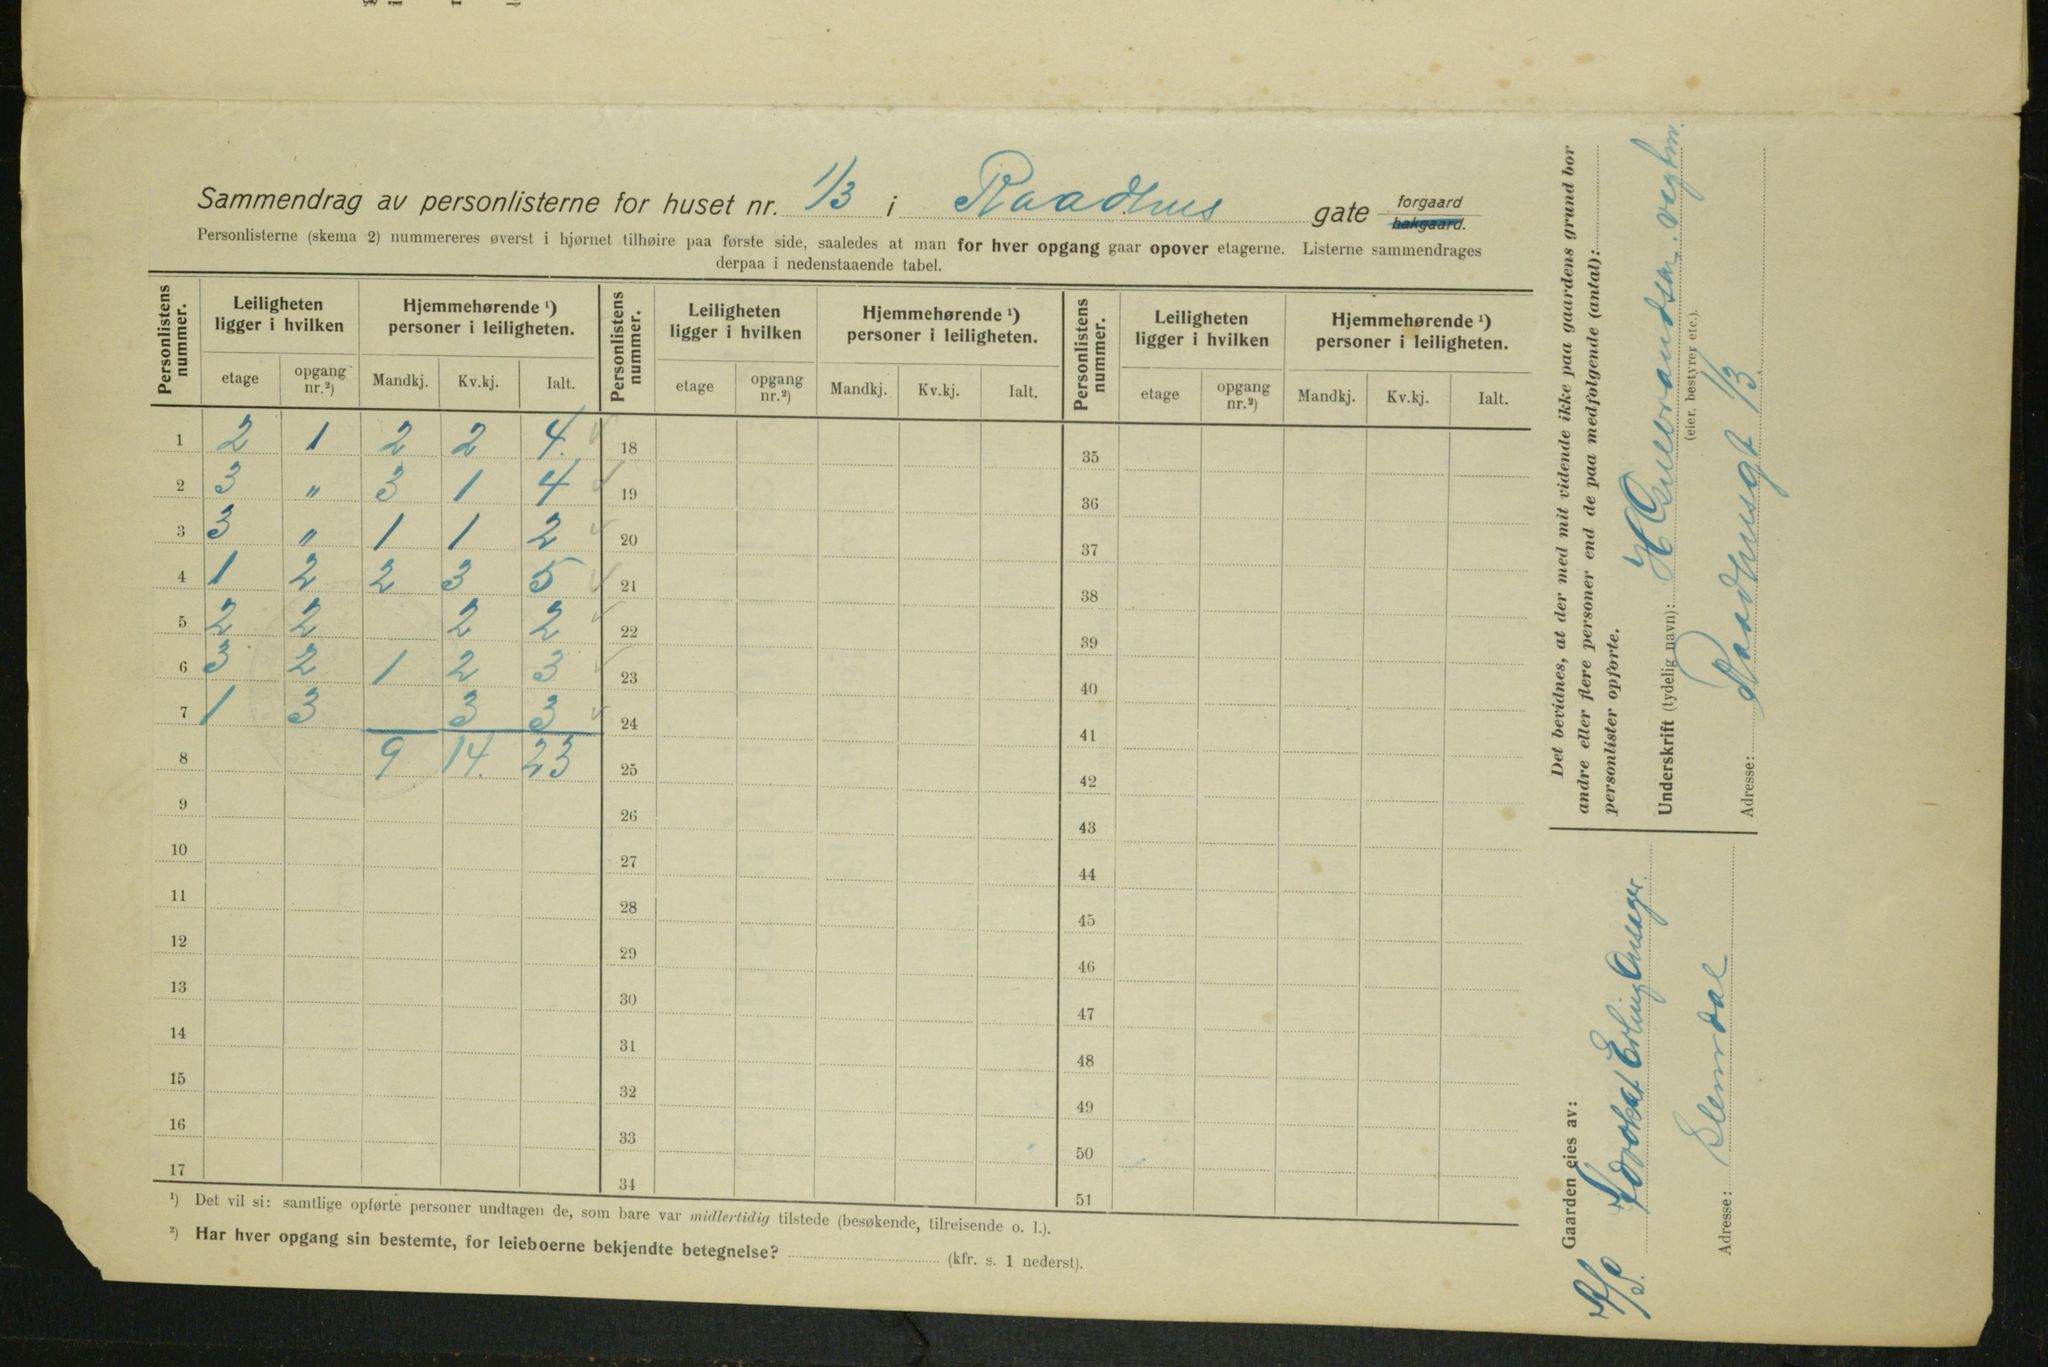 Sammendrag av personlisterne for huset nr. 1/3 i Raadhus gate forgaard bakgaard.
Personlisterne (skema 2) nummereres øverst i hjørnet tilhøire paa første side, saaledes at man for hver opgang gaar opover etagerne. Listerne sammendrages
derpaa i nedenstaaende tabel.
Personlistens nummer. Leiligheten ligger i hvilken Hjemmehørende ¹) personer i leiligheten. Personlistens nummer. Leiligheten ligger i hvilken Hjemmehørende ¹) personer i leiligheten. Personlistens nummer. Leiligheten ligger i hvilken Hjemmehørende ¹) personer i leiligheten.
etage opgang nr.²) Mandkj. Kv.kj. Ialt. etage opgang nr.²) Mandkj. Kv.kj. Ialt. etage opgang nr.²) Mandkj. Kv.kj. Ialt.
1 2 1 2 2 4. 18 35
2 3 " 3 1 4 19 36
3 3 " 1 1 2 20 37
4 1 2 2 3 5 21 38
5 2 2 2 2 22 39
6 3 2 1 2 3 23 40
7 1 3 3 3 24 41
8 9 14. 23 25 42
9 26 43
10 27 44
11 28 45
12 29 46
13 30 47
14 31 48
15 32 49
16 33 50
17 34 51
¹) Det vil si: samtlige opførte personer undtagen de, som bare var midlertidig tilstede (besøkende, tilreisende o. l.).
²) Har hver opgang sin bestemte, for leieboerne bekjendte betegnelse? (kfr. s. 1 nederst).
Det bevidnes, at der med mit vidende ikke paa gaardens grund bor
andre eller flere personer end de paa medfølgende (antal):
personlister opførte.
Underskrift (tydelig navn):
(eier, bestyrer etc.).
Adresse: Raadhusgt 1/3
Gaarden eies av:
Advokat Erling
Adresse: Slemdal